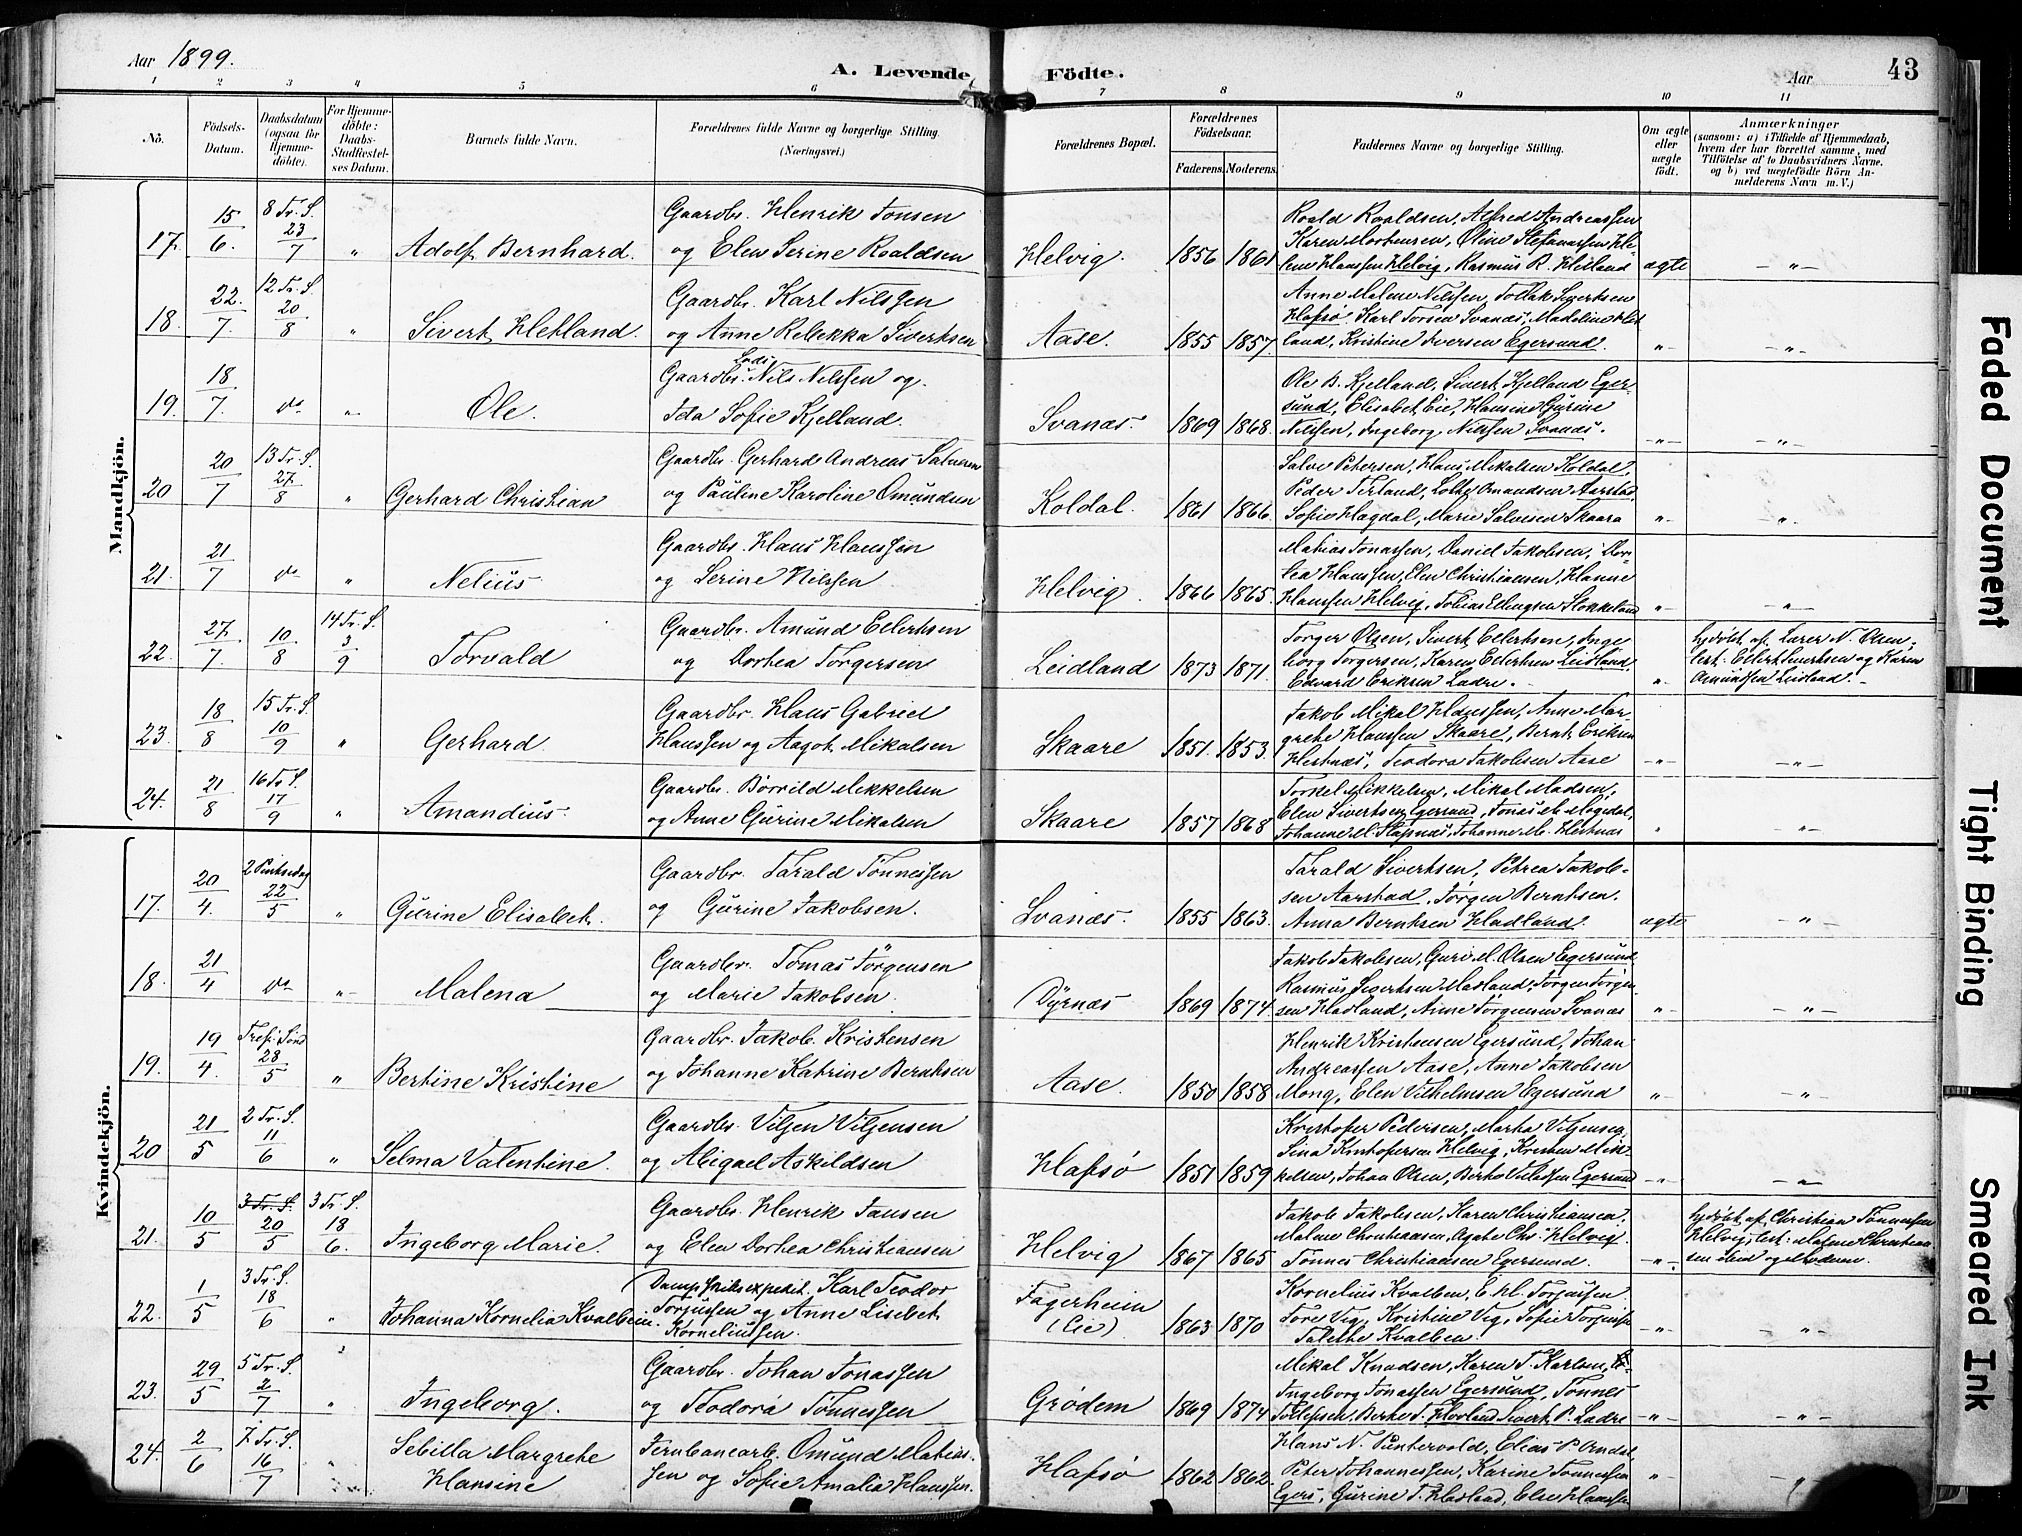 Aar 1899.
A. Levende Födte.
Aar
43
1 2 3 4 5 6 7 8 9 10 11
No.
Födsels-
Datum.
Daabsdatum
(ogsaa for
Hjemme-
döbte).
For Hjemme-
döbte:
Daabs-
Stadfæstel-
ses Datum.
Barnets fulde Navn.
Forældrenes fulde Navne og borgerlige Stilling.
(Næringsvei.)
Forældrenes Bopæl.
Forældrenes
Födselsaar.
Faderens. Moderens.
Faddernes Navne og borgerlige Stilling.
Om ægte
eller
uægte
födt.
Anmærkninger
(saasom: a) i Tilfælde af Hjemmedaab,
hvem der har forrettet samme, med
Tilföielse af to Daabsvidners Navne.
og b) ved uægtefödte Börn An-
melderens Navn m. V.)
Mandkjön.
17. 15/6. 8 Tr. S. 23/7 " Adolf Bernhard.
Gaardbr. Henrik Tonsen
og Elen Serine Roaldsen
Helvig. 1856 1861
Roald Roaldsen, Alfred Andreassen
Karen Mortensen, Oline Stefanussen He-
lene Hanssen Helvig, Rasmus R. Hetland
ægte —"—
18. 22./7. 12 Tr. S. 20/8 " Sivert Hetland.
Gaardbr. Karl Nilssen
og Anne Rebekka Sivertsen
Aase. 1855 1857.
Anne Malene Nilssen, Tollak Sivertsen
Hafsø, Karl Torsen Svanæs, Madeline Het-
land, Kristine Iversen Egersund.
—"— —"—
19. 18/7. do " Ole.
Gaardbr. Nils Nilssen og
Ida Sofie Kjelland.
Svanæs. 1869 1868.
Ole B. Kjelland, Sivert Kjelland Eger-
sund, Elisabet Eie, Hansine Gurine
Nilssen, Ingeborg Nilssen Svanæs.
—"— —"—
20 20/7 13 Tr. S. 27/8 " Gerhard Christian
Gaardbr. Gerhard Andreas Salvesen
og Pauline Karoline Omundsen
Koldal. 1861 1866.
Salve Petersen, Hans Mikalsen Koldal,
Peder Terland, Lotte Omundsen Aarstad,
Sofie Hagdal, Marie Salvesen Skaara
" "
21. 21/7 do " Nelius
Gaardbr. Hans Hanssen
og Serine Nilssen
Helvig. 1866 1865.
Matias Jonassen, Daniel Jakobsen, Dor-
tea Hanssen, Elen Christiansen, Hanne
Hanssen Helvig, Tobias Ellingsen Stokkeland
" "
22. 27/7. 10/8 14 Tr. S. 3/9 Torvald
Gaardbr. Amund Eilertsen
og Dorthea Torgersen
Leidland 1873 1871.
Torger Olsen, Sivert Eilertsen, Inge-
borg Torgersen, Karen Eilertsen Leidland,
Edvard Eriksen Ladre.
"
hjdøbt af Lærer N. Olsen.
test: Eilert Sivertsen og Karen
Omundsen Leidland.
23. 18/8 15 Tr. S. 10/9 " Gerhard
Gaardbr. Hans Gabriel
Hanssen og Aagot Mikalsen
Skaare 1851. 1853.
Jakob Mikal Hanssen, Anne Mar-
grethe Hanssen Skaare, Bernt Eriksen
Hestnæs, Teodora Jakobsen Aase
—"— —"—
24. 21/8 16 Tr. S. 17/9 " Amandius
Gaardbr. Børrild Mikkelsen
og Anne Gurine Mikalsen
Skaare 1857 1868
Torkel Mikkelsen, Mikal Madsen,
Elen Sivertsen Egersund, Jonas M. Møgedal,
Johanne M. Hafsnæs, Johanne M. Hestnæs
" "
Kvindekjön.
17. 20/4. 2 Pintsedag 22/5 " Gurine Elisabet.
Gaardbr. Tarald Tønnessen
og Gurine Jakobsen.
Svanæs. 1855 1863.
Tarald Sivertsen, Petrea Jakob-
sen Aarstad, Jørgen Berntsen.
Anna Berntsen Hadland.
ægte —"—
18. 21/4 do " Malena
Gaardbr. Tomas Jørgensen
og Marie Jakobsen.
Dyrnæs 1869 1874
Jakob Jakobsen, Guri M. Olsen Egersund,
Rasmus Sivertsen Hadland, Jørgen Jørgen-
sen Hadland, Anne Jørgensen Svanæs
" "
19. 19/4. Tref. Sønd 28/5 " Bertine Kristine
Gaardbr. Jakob Kristensen
og Johanne Katrine Berntsen
Aase. 1850 1858
Henrik Kristensen Egersund, Johan
Andreassen Aase, Anne Jakobsen
Mong, Elen Vilhelmsen Egersund
" "
20 21/5 2 Tr. S. 11/6 " Selma Valentine.
Gaardbr. Viljen Viljensen
og Abigael Askildsen
Hafsø 1851 1859
Kristofer Pedersen, Marta Viljensen,
Sina Kristofersen Helvig, Kristen Mik-
kelsen, Johan Olsen, Berta Tobiassen Egersund
—"— —"—
21. 10/5 3 Tr. S. 20/5 3 Tr. S. 18/6. Ingeborg Marie.
Gaardbr. Henrik Jansen
og Elen Dorthea Christiansen
Helvig 1867 1865
Jakob Jakobsen, Karen Christiansen,
Malene Christiansen, Agate Chr. Helvig,
Tønnes Christiansen Egersund.
"
hjdøbt af Christian Tønnessen
Helvig, test: Malene Christian-
sen ibid og Moderen.
22. 1/5 3 Tr. S. 18/6 " Johanna Kornelia Kvalbein.
Karl Teodor
Torjussen og Anne Lisebet
Korneliussen.
Fagerheim
(Eie) 1863 1870
Kornelius Kvalben, E. hl. Torjussen.
Tore Vig, Kristine Vig, Sofie Torjussen
Talette Kvalben.
" "
23. 29/5 5 Tr. S. 2/7 " Ingeborg.
Gaardbr. Johan Jonassen
og Teodora Tønnessen
Grødem 1869 1874
Mikal Knudsen, Karen T. Karlsen,
Ingeborg Jonassen Egersund, Tønnes
Tollefsen, Berte T. Hovland Sivert P. Ladre
—"— "
24. 2/6 7. Tr. S. 16/7 " Sebilla Margrethe
Hansine
Jernbanearb. Omund Matias-
sen og Sofie Amalia Hanssen.
Hafsø 1862 1862.
Hans N. Puntervold, Elias P. Omdal,
Peter Johannessen, Karine Tønnessen
Egers, Gurine T. Hadland, Else Hanssen
"
Faded Document
Tight Binding
Smeared Ink